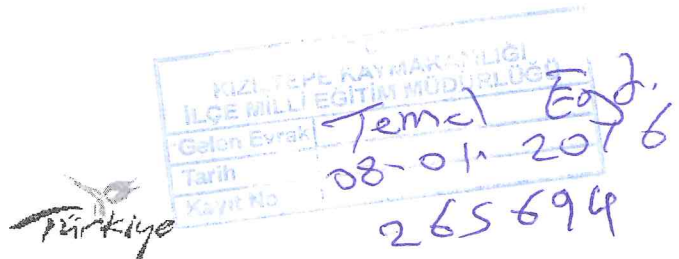 KIZILTEPE KAYMAKAMLIĞI
İLÇE MİLLİ EĞİTİM MÜDÜRLÜĞÜ
Gelen Evrak Temel Eğt.
Tarih 08-01-2016
Kayıt No 265694
Türkiye